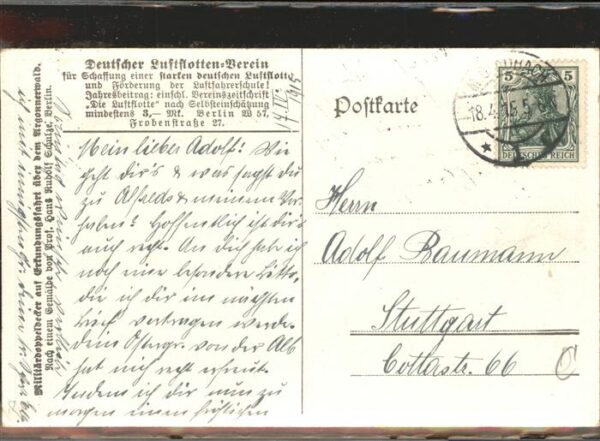 Deutscher Luftflotten-Verein
für Schaffung einer starken deutschen Luftflotte
und Förderung der Luftfahrerschule!
Jahresbeitrag: einschl. Vereinszeitschrift
"Die Luftflotte" nach Selbsteinschätzung
mindestens 3,— Mk. Berlin W 57,
Frobenstraße 27.
Mein lieber Adolf! Wie
geht dir's & was sagst du
zu Alfreds & meinem Vor-
haben? Hoffentlich ist dir's
auch recht. An dich hab ich
noch eine besondere Bitte,
die ich dir im nächsten
Brief vortragen werde.
dein Ostergr. von der Alb
hat mich recht erfreut.
Indem ich dir nun zu
morgen einen fröhlichen
Militärdoppeldecker auf Erkundungsfahrt über dem Argonnerwald.
Nach einem Gemälde von Prof. Hans Rudolf Schulze, Berlin.
Postkarte
18.4.15.5
5 5
DEUTSCHES REICH
Herrn
Adolf Baumann
Stuttgart
Cottastr. 66